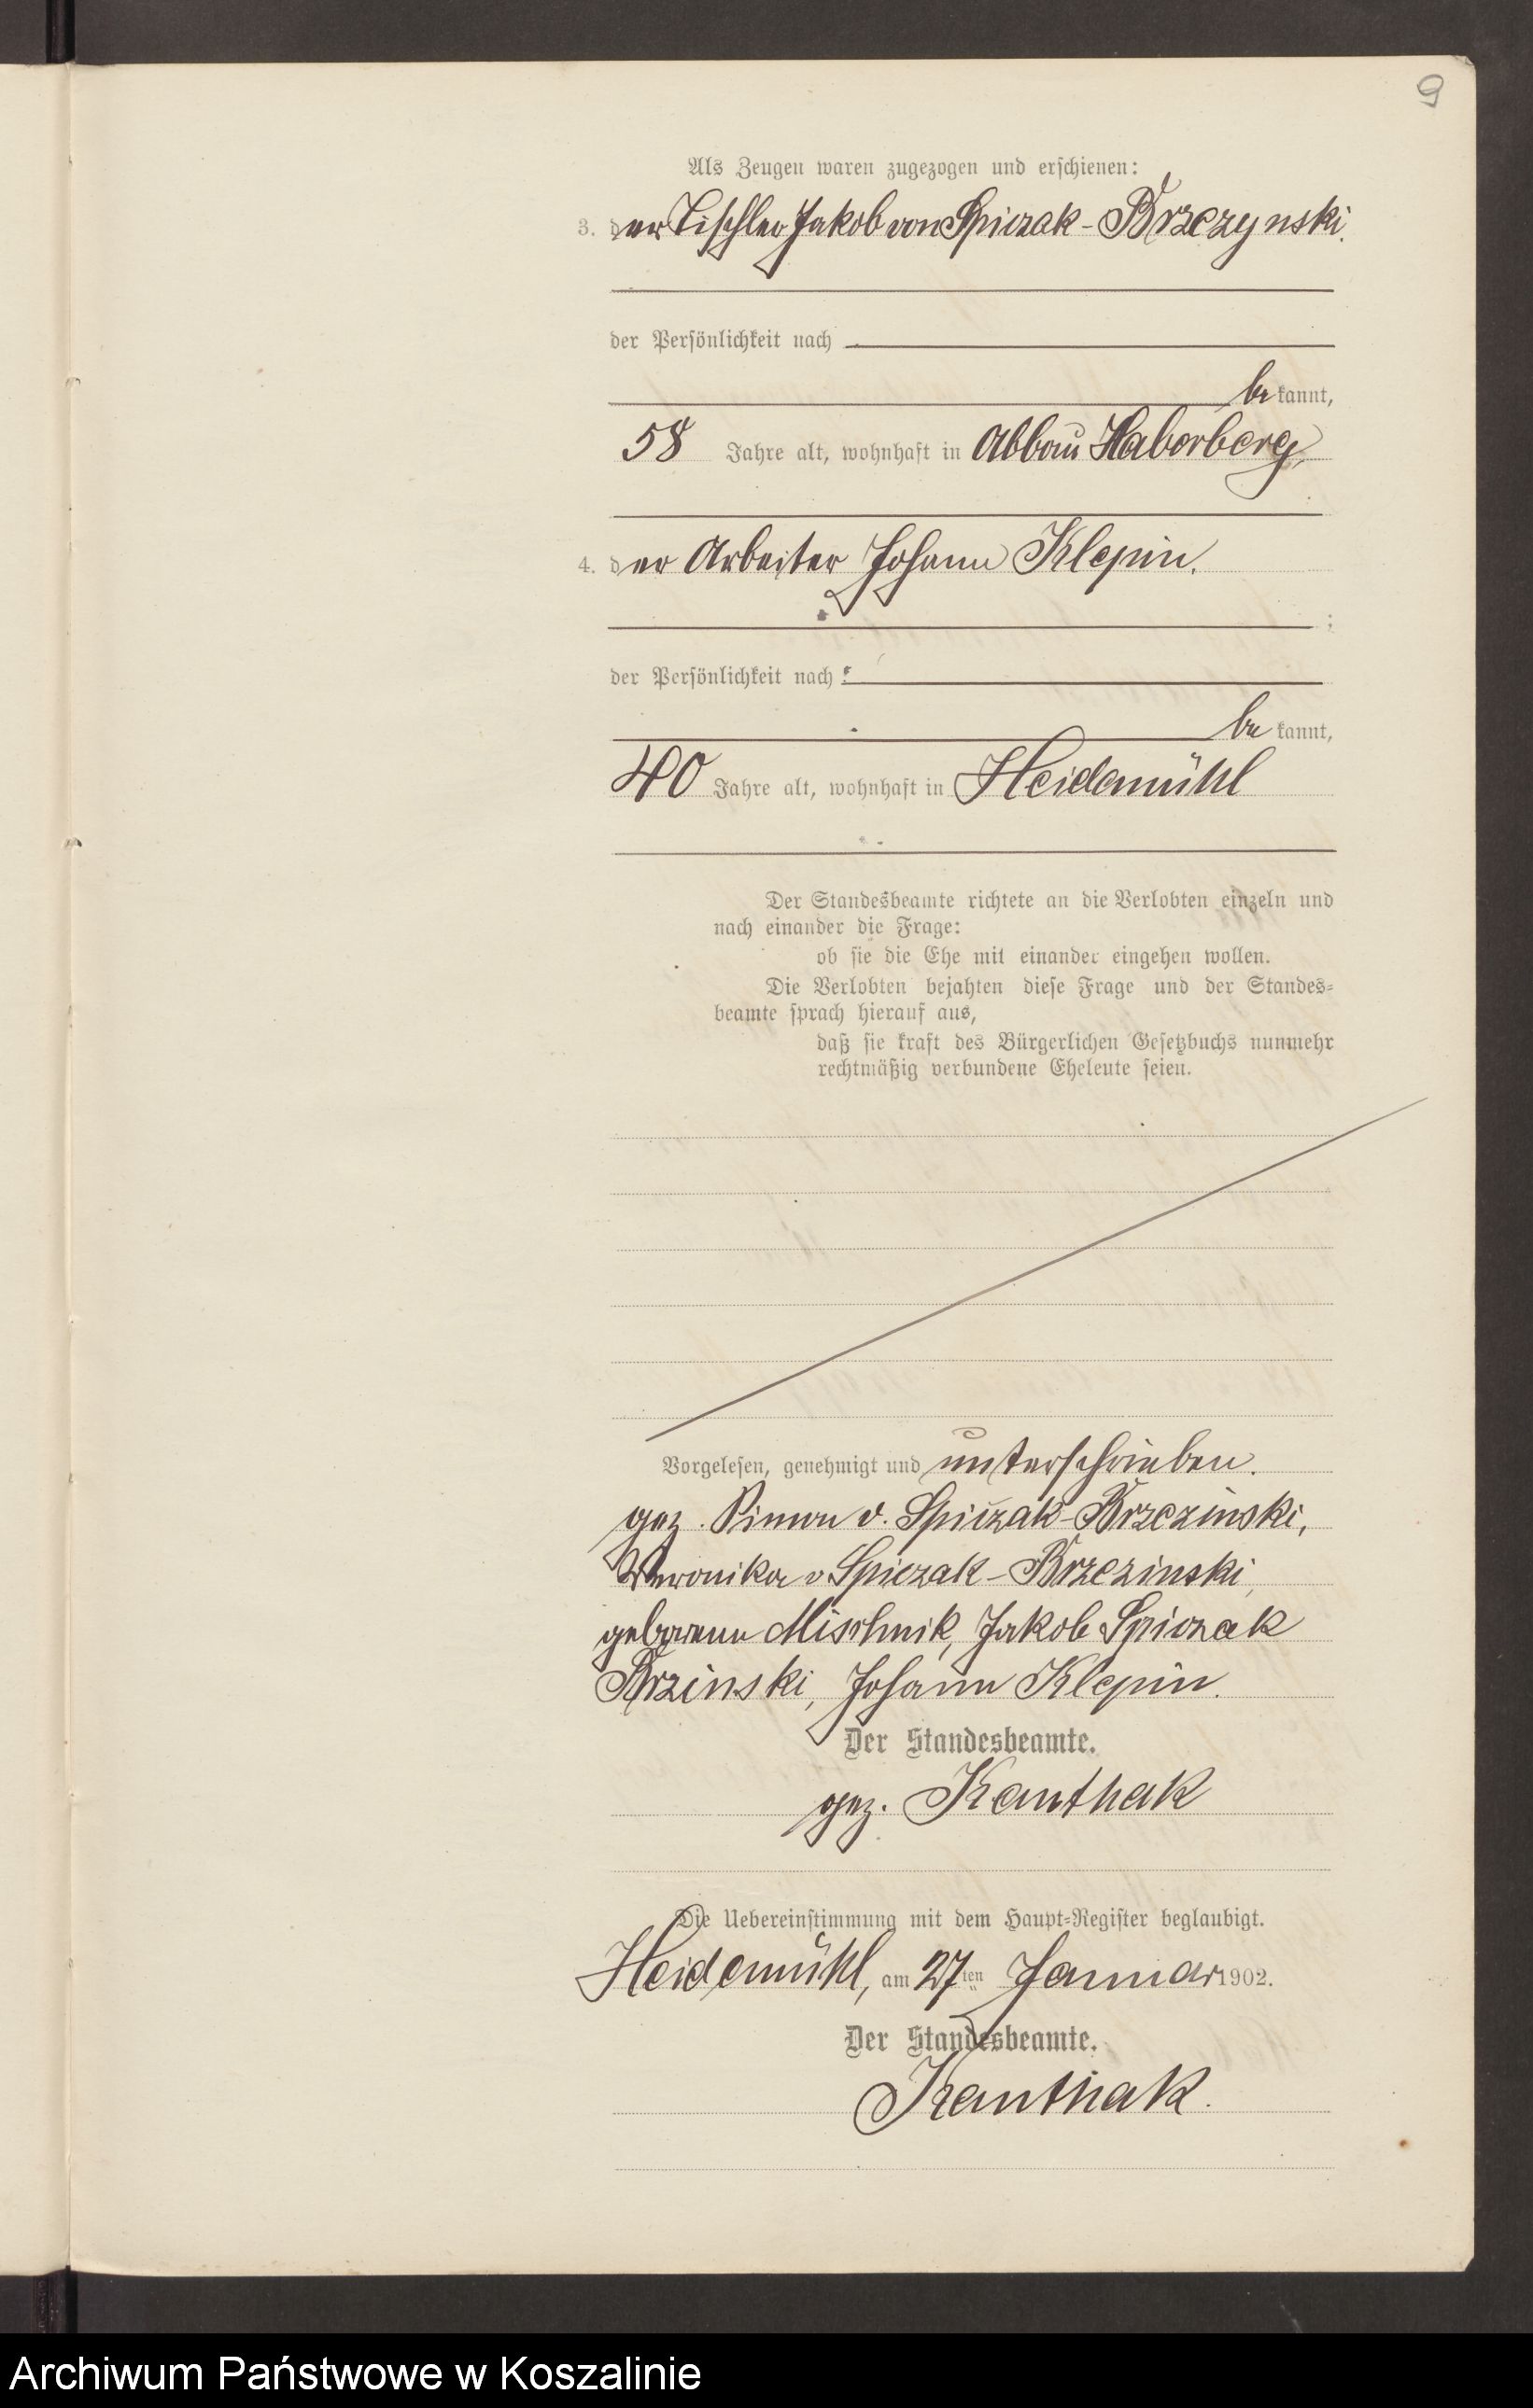 9
Als Zeugen waren zugezogen und erschienen:
3. der Tischler Jakob von Spiczak-Brzezynski
der Persönlichkeit nach
bekannt,
58 Jahre alt, wohnhaft in Abbau Haberberg,
4. der Arbeiter Johann Klepin.
;
der Persönlichkeit nach
bekannt,
40 Jahre alt, wohnhaft in Heidemühl
Der Standesbeamte richtete an die Verlobten einzeln und
nach einander die Frage:
ob sie die Ehe mit einander eingehen wollen.
Die Verlobten bejahten diese Frage und der Standes-
beamte sprach hierauf aus,
daß sie kraft des Bürgerlichen Gesetzbuchs nunmehr
rechtmäßig verbundene Eheleute seien.
Vorgelesen, genehmigt und unterschrieben.
gez. Simon v. Spiczak-Brzezinski,
Weronika v Spiczak-Brzezinski,
geborene Mischnik, Jakob Spiczak
Brzinski, Johann Klepin.
Der Standesbeamte.
gez. Kanthak
Die Uebereinstimmung mit dem Haupt-Register beglaubigt.
Heidemühl, am 27ten Januar 1902.
Der Standesbeamte.
Kanthak.
Archiwum Państwowe w Koszalinie